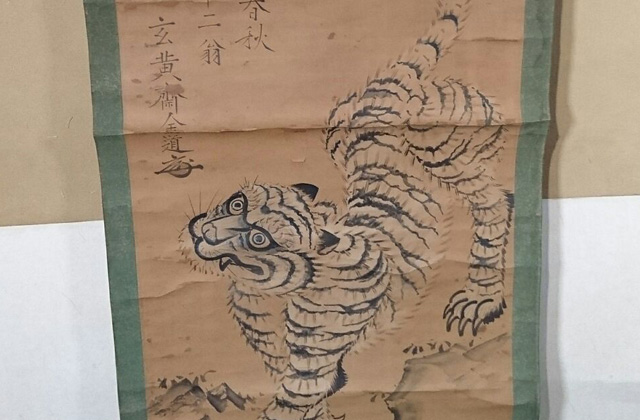 春秋
十二翁
玄黄齋金道